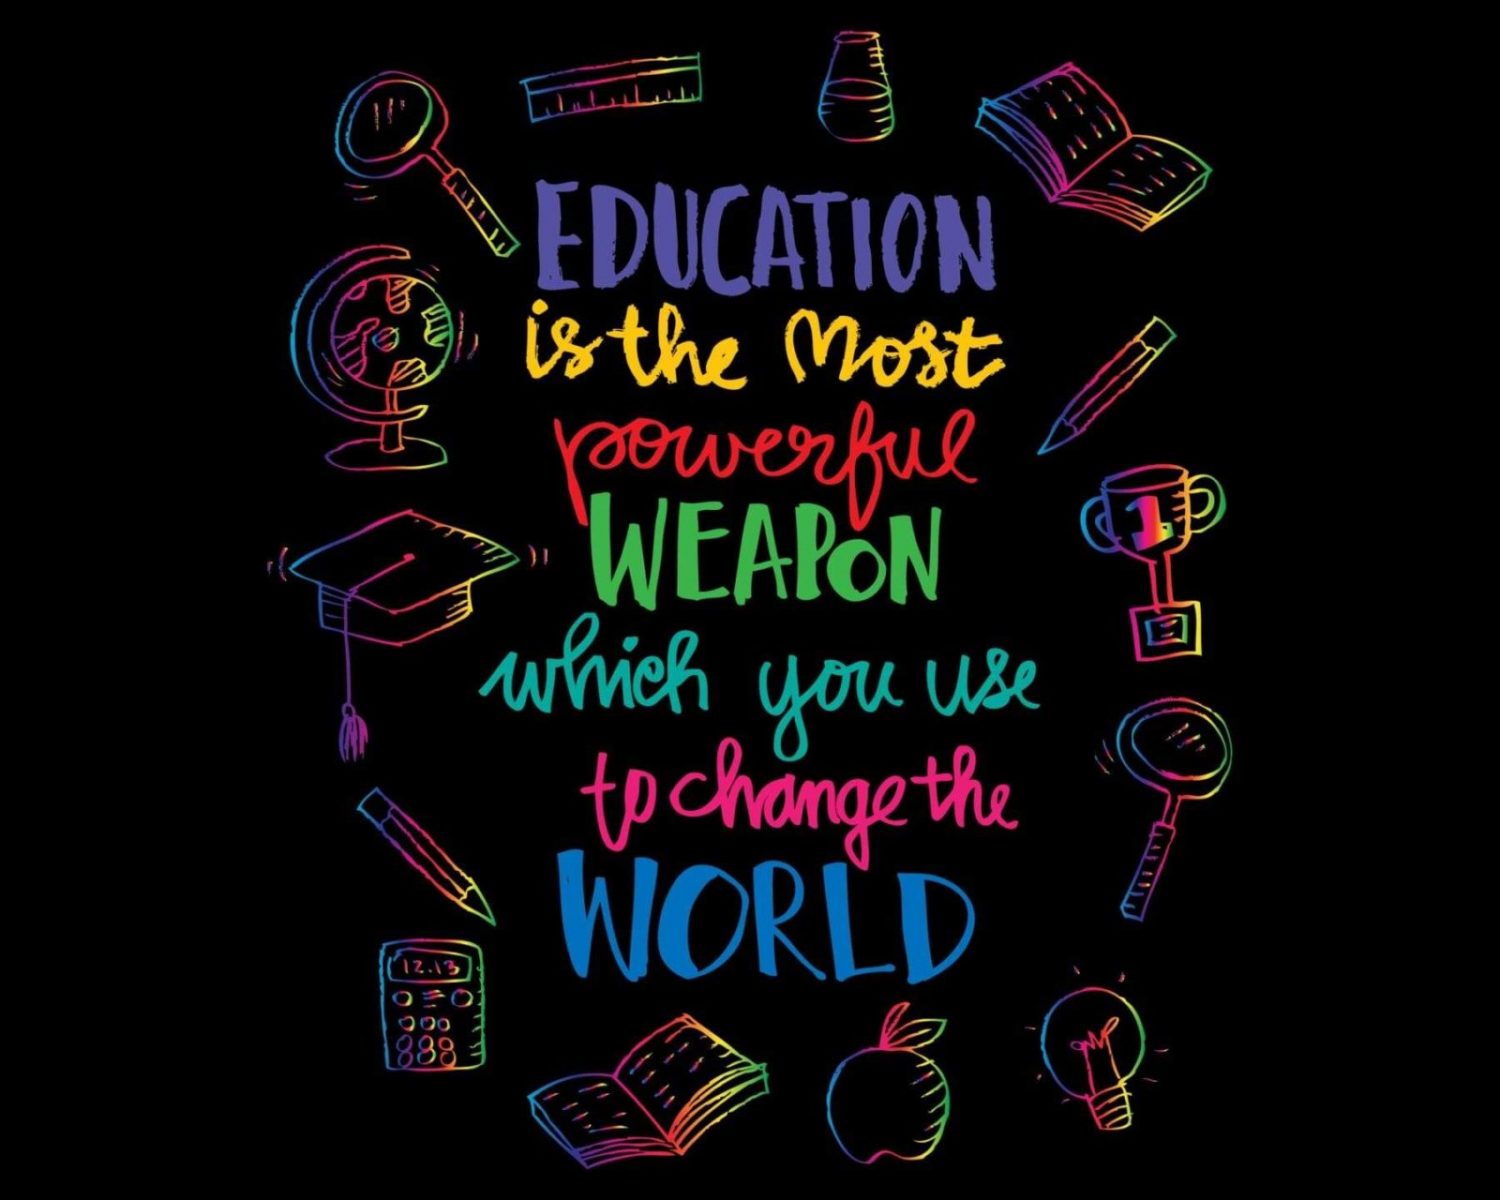 EDUCATION
is the Most
powerful
WEAPON
which you use
to change the
WORLD
1
12.13